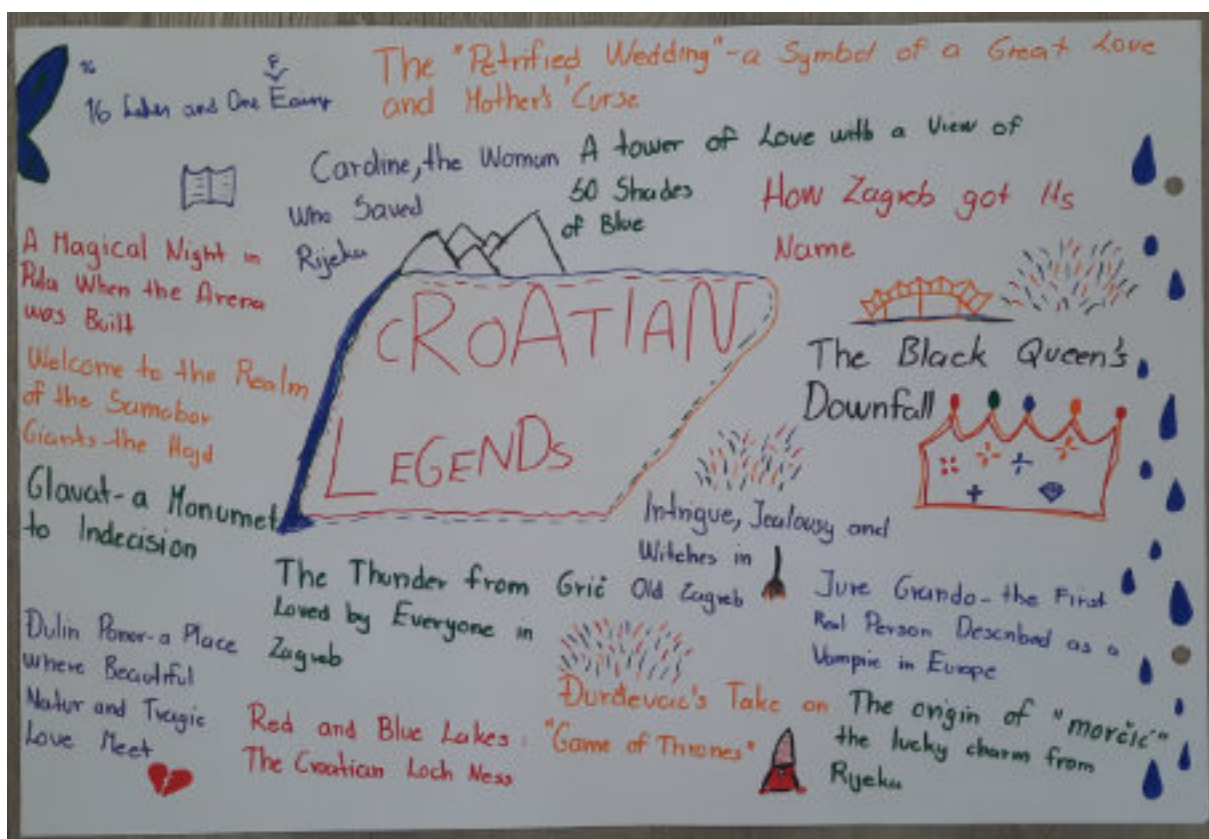 The "Petrified Wedding" - a Symbol of a Great Love
and Mother's Curse
16 and One
Caroline, the Woman
Who Saved
Rijeka
A tower of Love with a View of
50 Shades
of Blue
How Zagreb got Its
Name
A Magical Night in
Pula When the Arena
was Built
CROATIAN
LEGENDS
The Black Queen's
Downfall
Welcome to the Realm
of the Samobor
Giants - the Hajd
Glavat - a Monumet
to Indecision
Intrigue, Jealousy and
Witches in
Old Zagreb
The Thunder from Grič
Loved by Everyone in
Zagreb
Jure Grando - the First
Real Person Described as a
Vampie in Europe
Đulin Ponor - a Place
where Beautiful
Natur and Tragic
Love Meet
Red and Blue Lakes:
The Croatian Loch Ness
Đurđevac's Take on
"Game of Thrones"
The origin of "morčić"
the lucky charm from
Rijeka